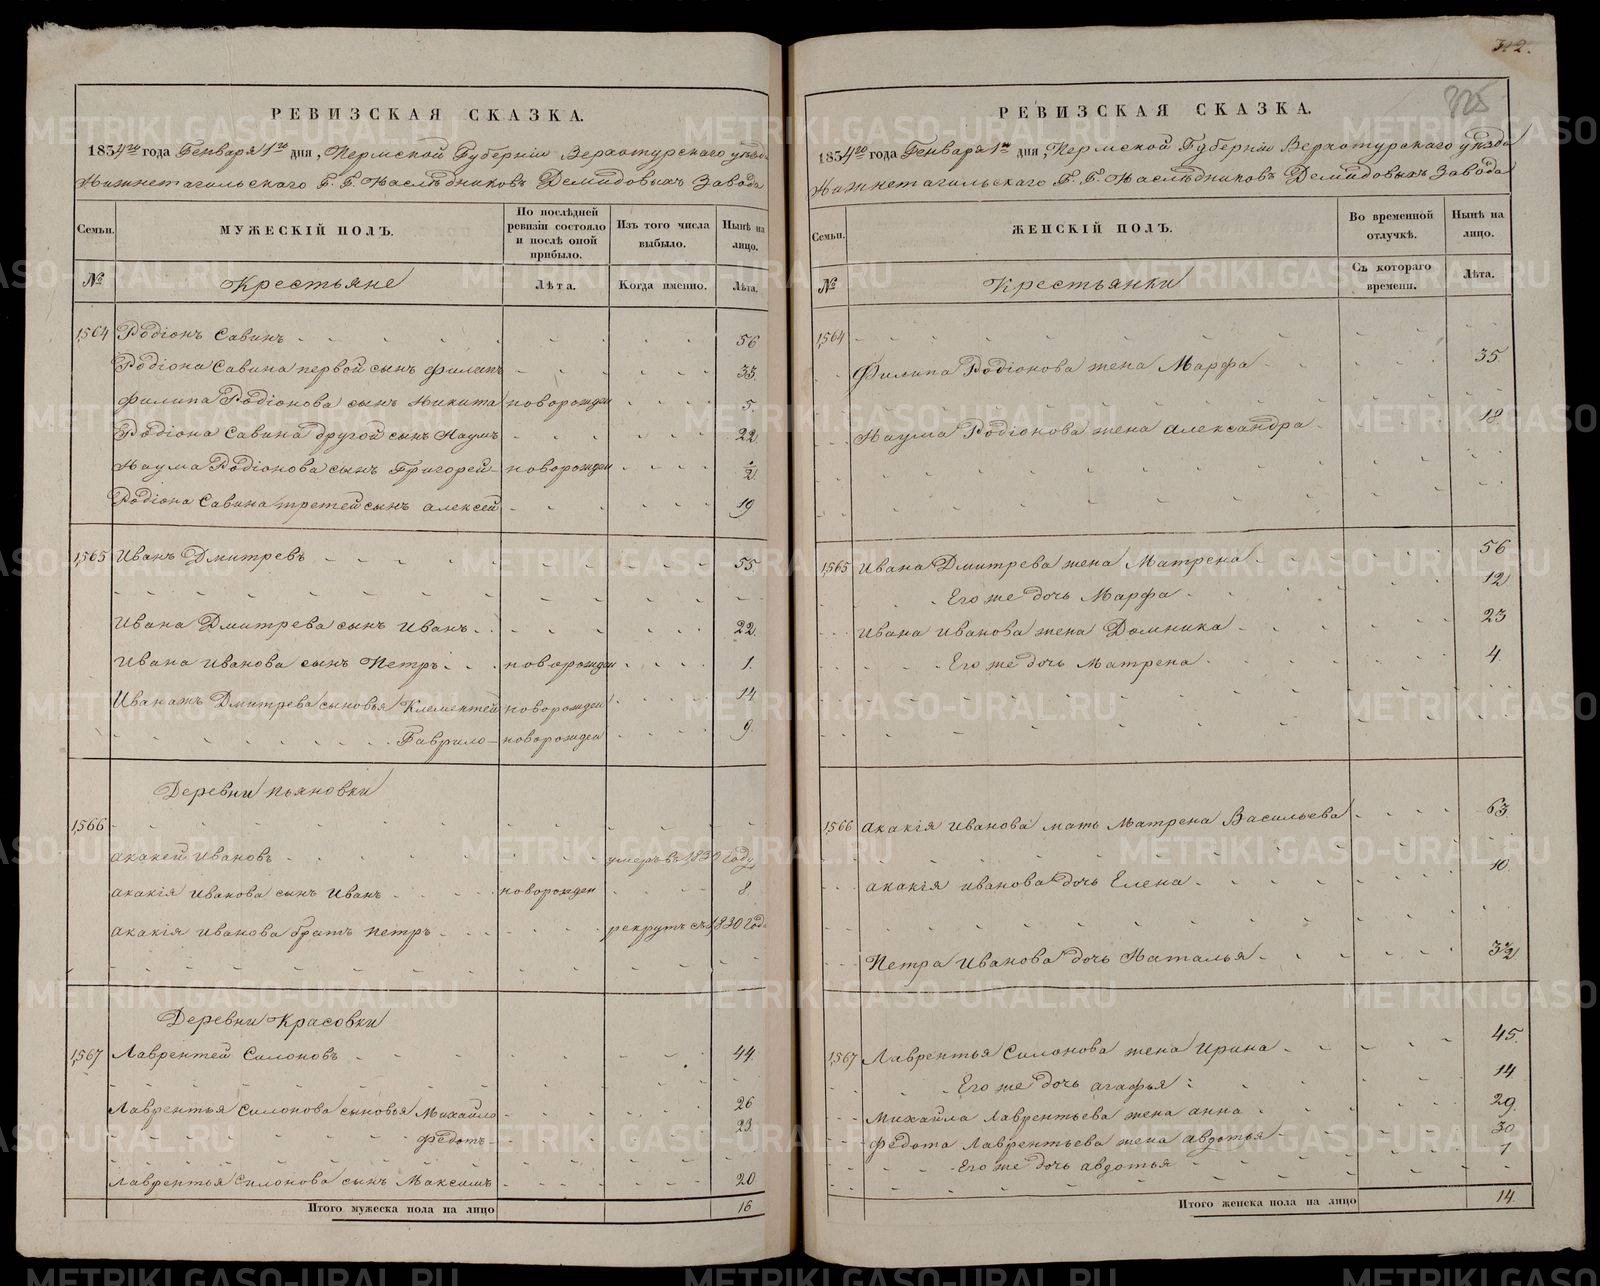 РЕВИЗСКАЯ СКАЗКА.
1834го года Генваря 1го дня, Пермской Губернии Верхотурского уезда
Нижнетагильскаго Г. Г. Наследниковъ Демидовыхъ Завода
Семьи.
МУЖЕСКІЙ ПОЛЪ.
По послѣдней ревизіи состояло и послѣ оной прибыло.
Изъ того числа выбыло.
Нынѣ на лицо.
№
Крестьяне
Лѣта.
Когда именно.
Лѣта.
1,564 Родіонъ Савинъ 56
Родіона Савина первой сынъ Филипъ 35.
Филипа Родіонова сынъ Никита новорожден 5.
Родіона Савина другой сынъ Наумъ 22
Наума Родіонова сынъ Григорей новорожден 1/2
Родіона Савина третей сынъ алексей 19
1,565 Иванъ Дмитревъ 55
Ивана Дмитрева сынъ Иванъ 22.
Ивана Иванова сынъ Петръ новорожден 1.
Дмитрева сыновья Клементей новорожден 14
Гаврило новорожден 9.
Деревни пьяновки
1,566
акакей Ивановъ умеръ въ 1830 году
акакія Иванова сынъ Иванъ новорожден 8
акакія Иванова братъ петръ рекрутъ съ 1,830 Года
Деревни Красовки
1,567 Лаврентей Силоновъ 44.
Лаврентья Силонова сыновья Михайло 26
Федотъ 23.
Лаврентья Силонова сынъ Максимъ 20
Итого мужеска пола на лицо 16
312.
325
РЕВИЗСКАЯ СКАЗКА.
1834го года Генваря 1го дня, Пермской Губерніи Верхотурскаго уезда
Нижнетагильскаго Г. Г. Наследниковъ Демидовыхъ Завода
Семьи.
ЖЕНСКІЙ ПОЛЪ.
Во временной отлучкѣ.
Нынѣ на лицо.
№
Крестьянки
Съ котораго времени.
Лѣта.
1,564
Филипа Родіонова жена Марфа 35.
Наума Родіонова жена александра 18.
1,565 Ивана Дмитрева жена Матрена 56
Его же дочь Марфа 12
Ивана Иванова жена Домника 23
Его же дочь Матрена 4.
1,566 акакія Иванова мать Матрена Васильева 63.
акакія иванова дочь Елена 10.
Петра Иванова дочь Наталья 3 1/2
1,567 Лаврентья Силонова жена Ирина 45.
Его же дочь агафья 14
Михайла Лаврентьева жена анна 29.
Федота Лаврентьева жена авдотья 30
Его же дочь авдотья 1
Итого женска пола на лицо 14.
METRIKI.GASO-URAL.RU